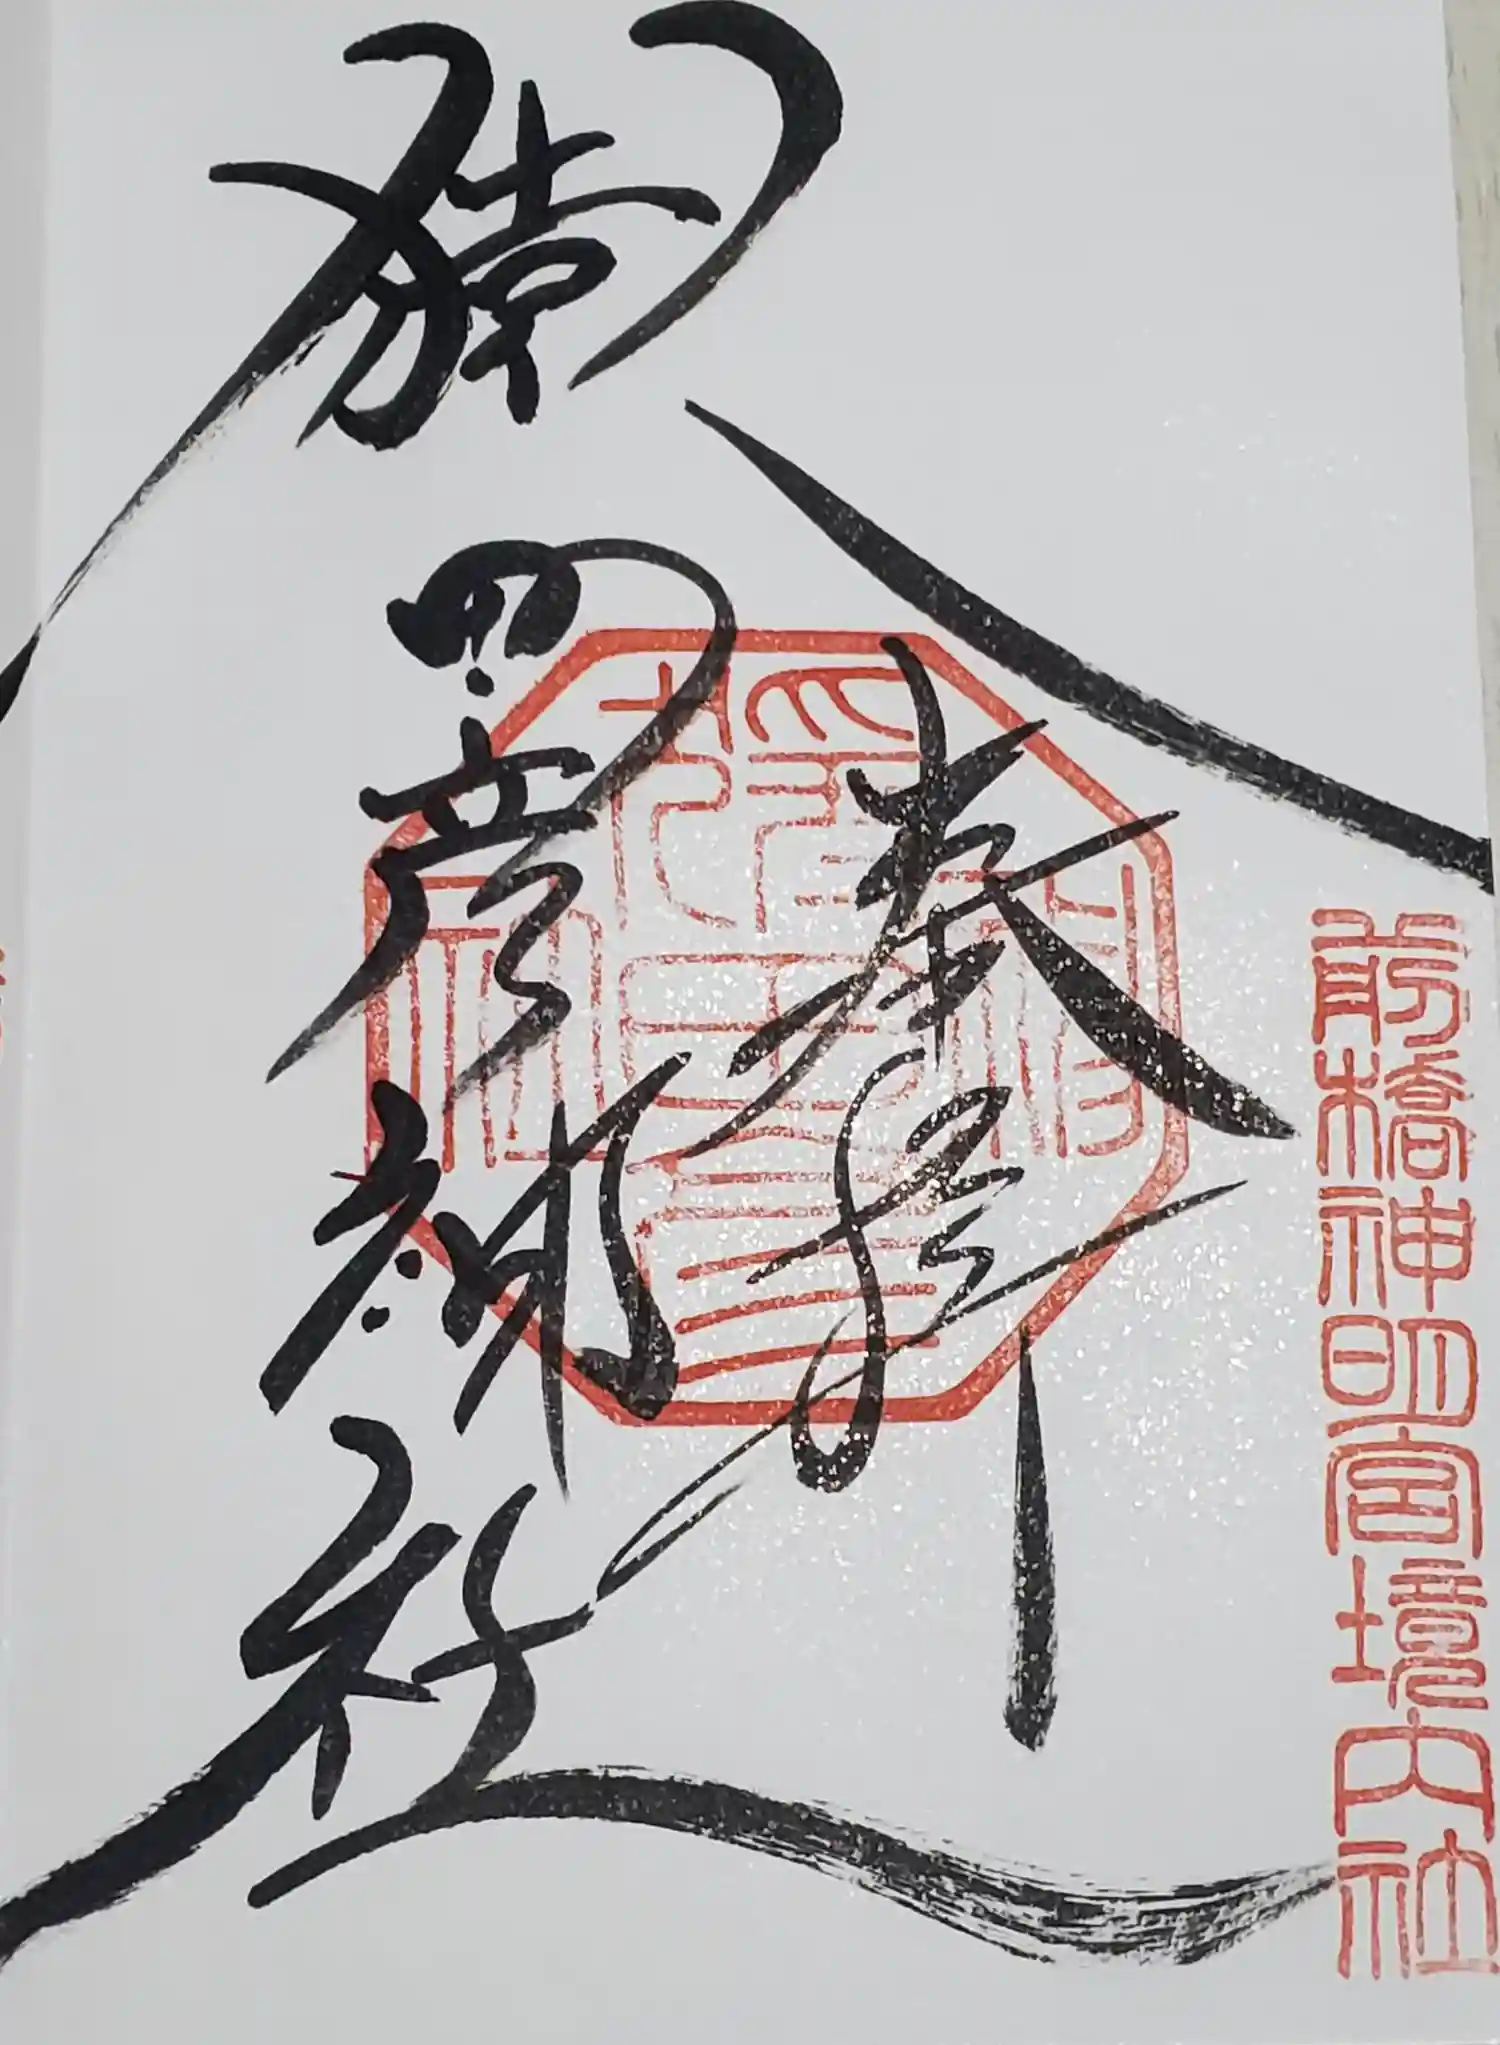 前橋神明宮境内社
奉拝
猿田彦神社